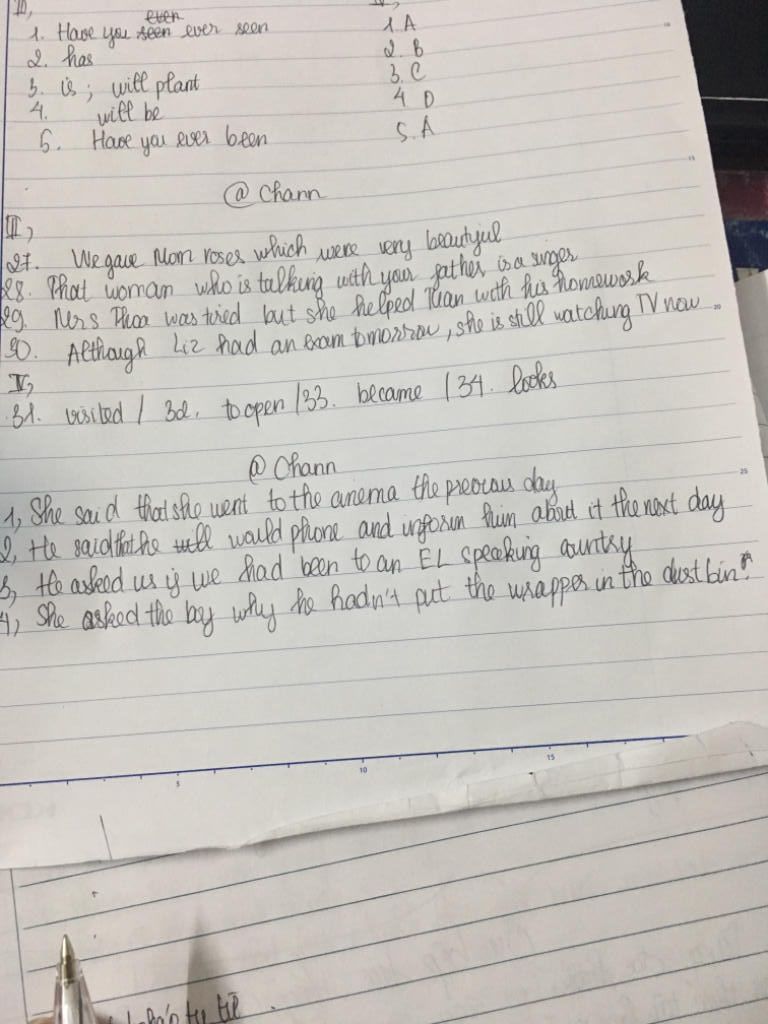 III,
1. Have you seen even ever seen
1. A
2. has
2. B
3. is; will plant
3. C
4. will be
4 D
5. Have you ever been
5. A
@ Chann
III,
27. We gave Mom roses which were very beautyul
28. That woman who is talking with your father is a singer
29. Mrs Thoa was tired but she helped Tuan with his homework
30. Although Liz had an exam tomorrow, she is still watching TV now
IV,
31. visited / 32. to open / 33. became / 34. looks
@ Chann
1, She said that she went to the cinema the previous day
2, He said that he will would phone and inform him about it the next day
3, He asked us if we had been to an EL speaking country
4, She asked the boy why he hadn't put the wrapper in the dust bin.
15
20
25
5
10
15